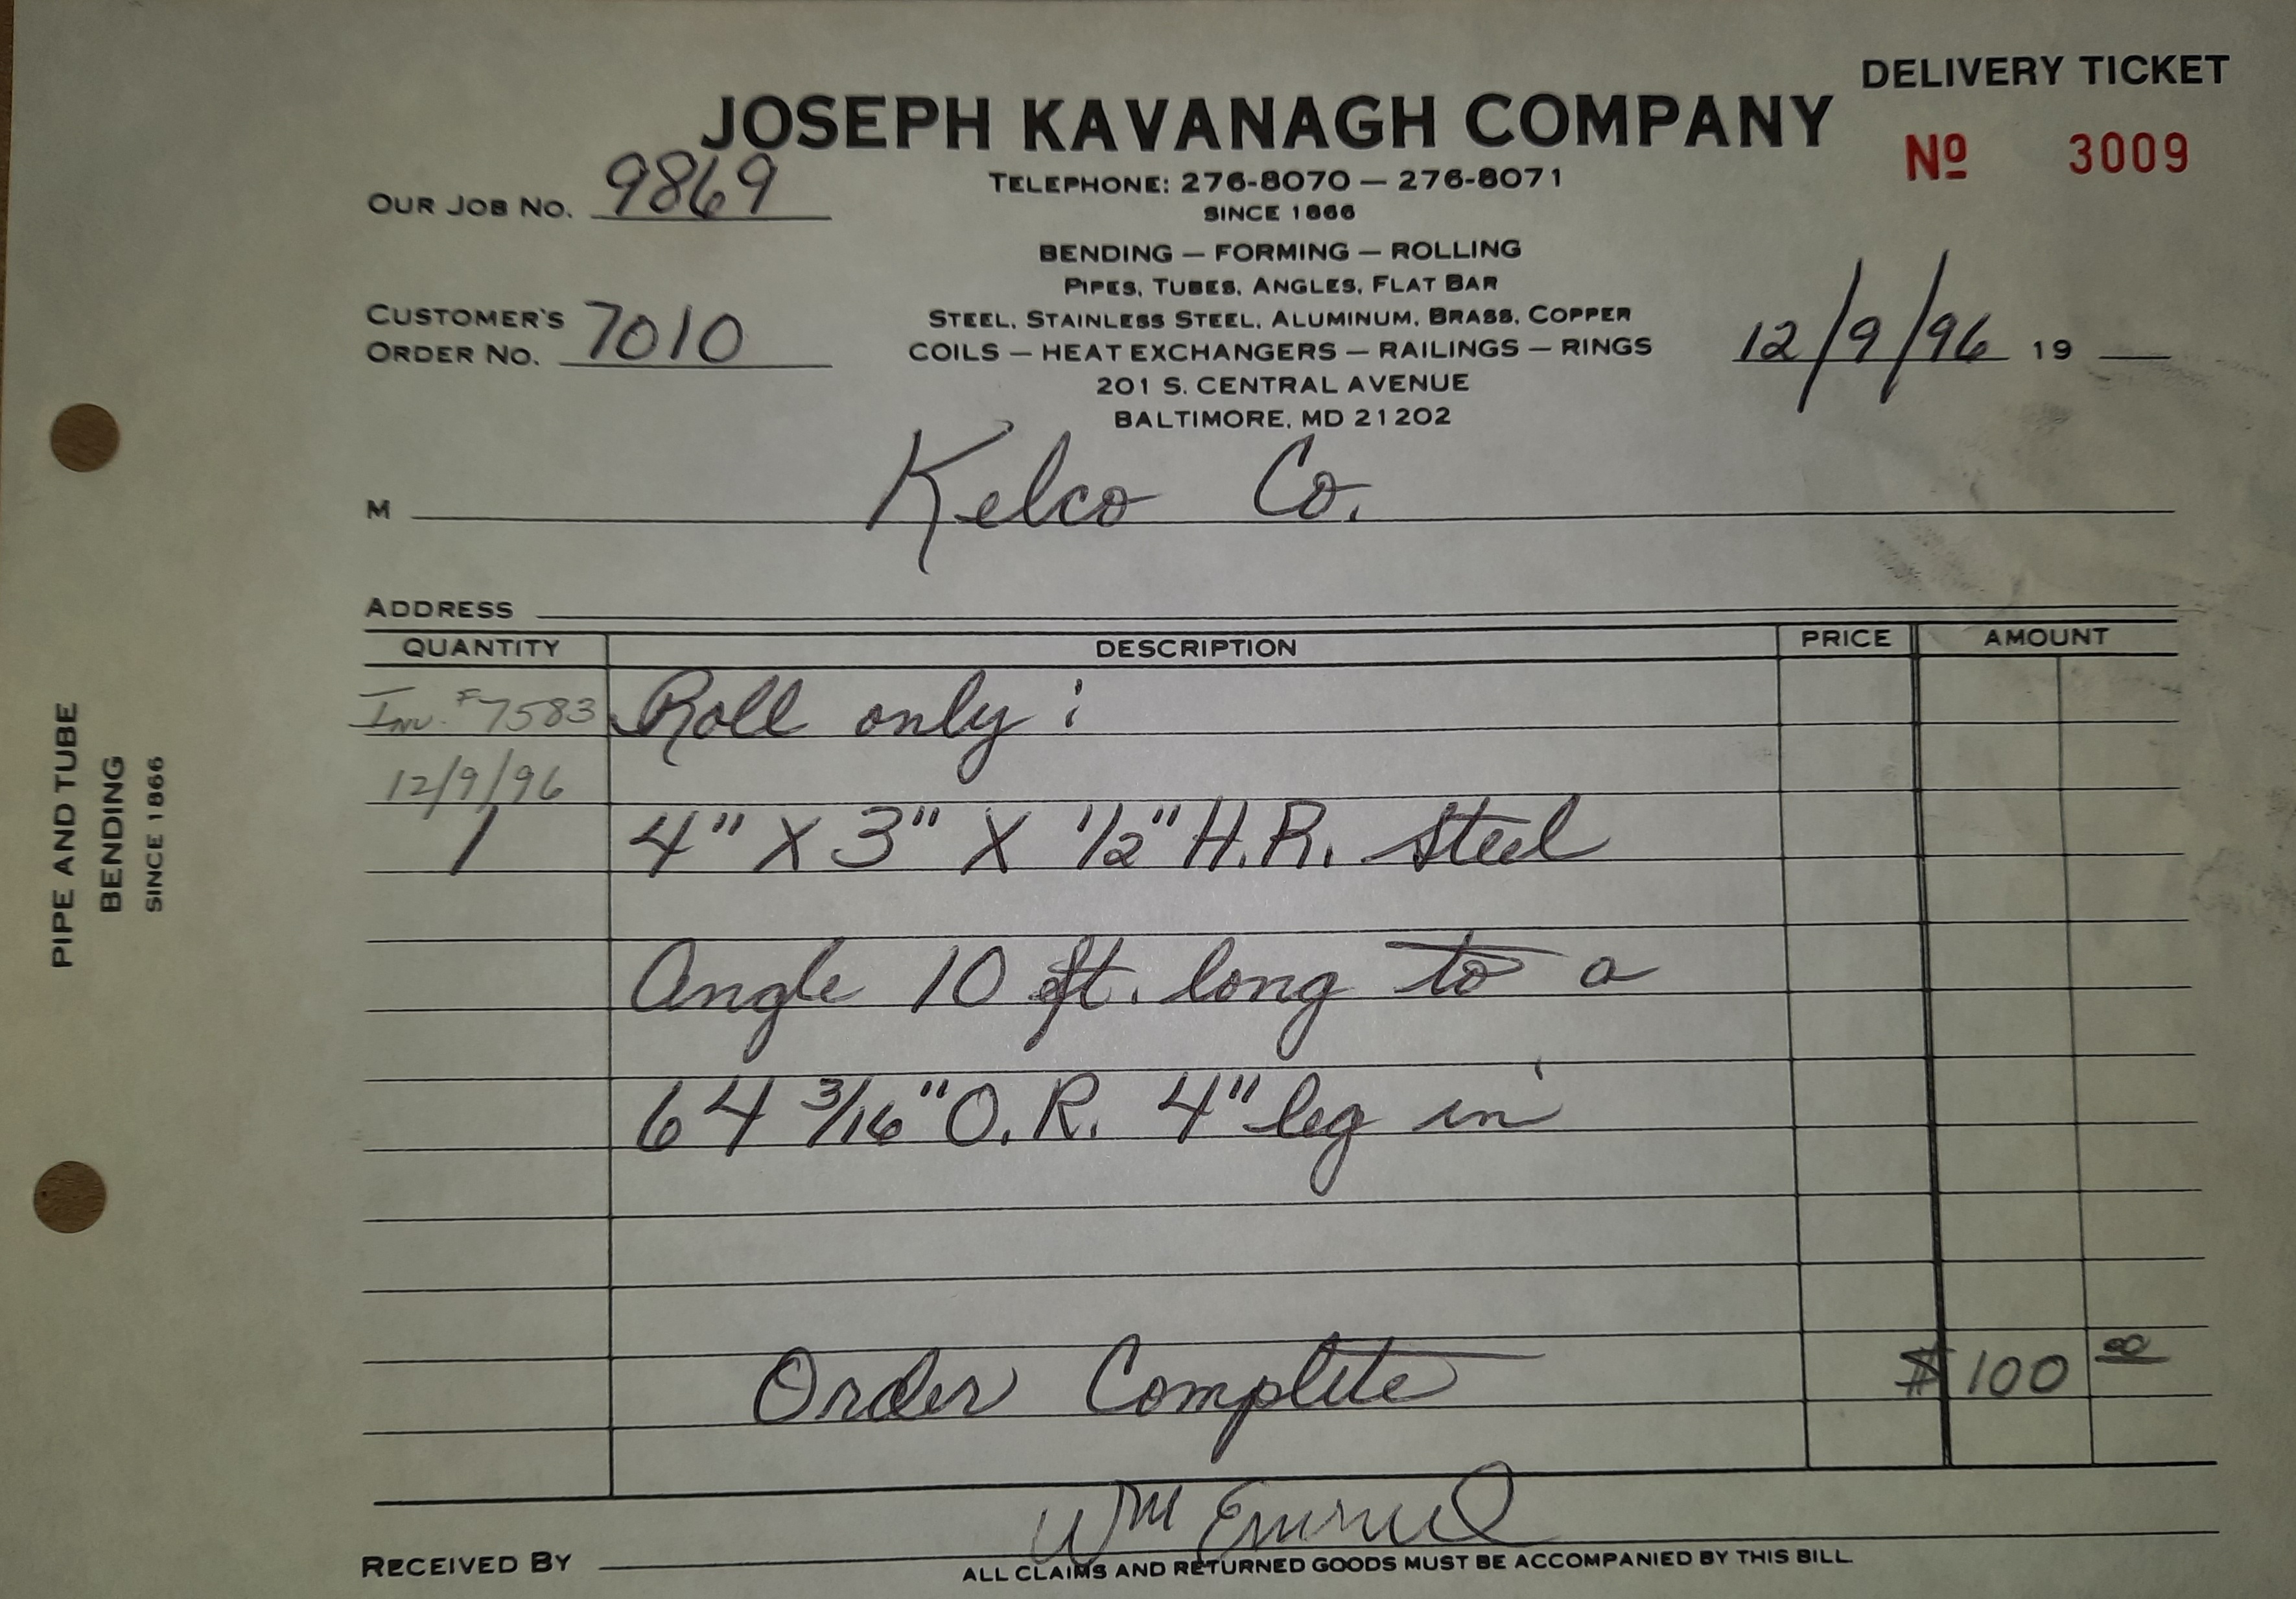 DELIVERY TICKET
JOSEPH KAVANAGH COMPANY
Nº 3009
OUR JOB NO. 9869
TELEPHONE: 276-8070 — 276-8071
SINCE 1866
BENDING — FORMING — ROLLING
PIPES, TUBES, ANGLES, FLAT BAR
CUSTOMER'S
ORDER NO. 7010
STEEL, STAINLESS STEEL, ALUMINUM, BRASS, COPPER
COILS — HEAT EXCHANGERS — RAILINGS — RINGS
12/9/96 19
201 S. CENTRAL AVENUE
BALTIMORE, MD 21202
M Kelco Co.
ADDRESS
QUANTITY DESCRIPTION PRICE AMOUNT
Inv. #7583 Roll only :
12/9/96
1 4" X 3" X 1/2" H.R. Steel
Angle 10 ft. long to a
64 3/16" O.R. 4" leg in
Order Complete $ 100 00
Wm
RECEIVED BY
ALL CLAIMS AND RETURNED GOODS MUST BE ACCOMPANIED BY THIS BILL
PIPE AND TUBE
BENDING
SINCE 1866